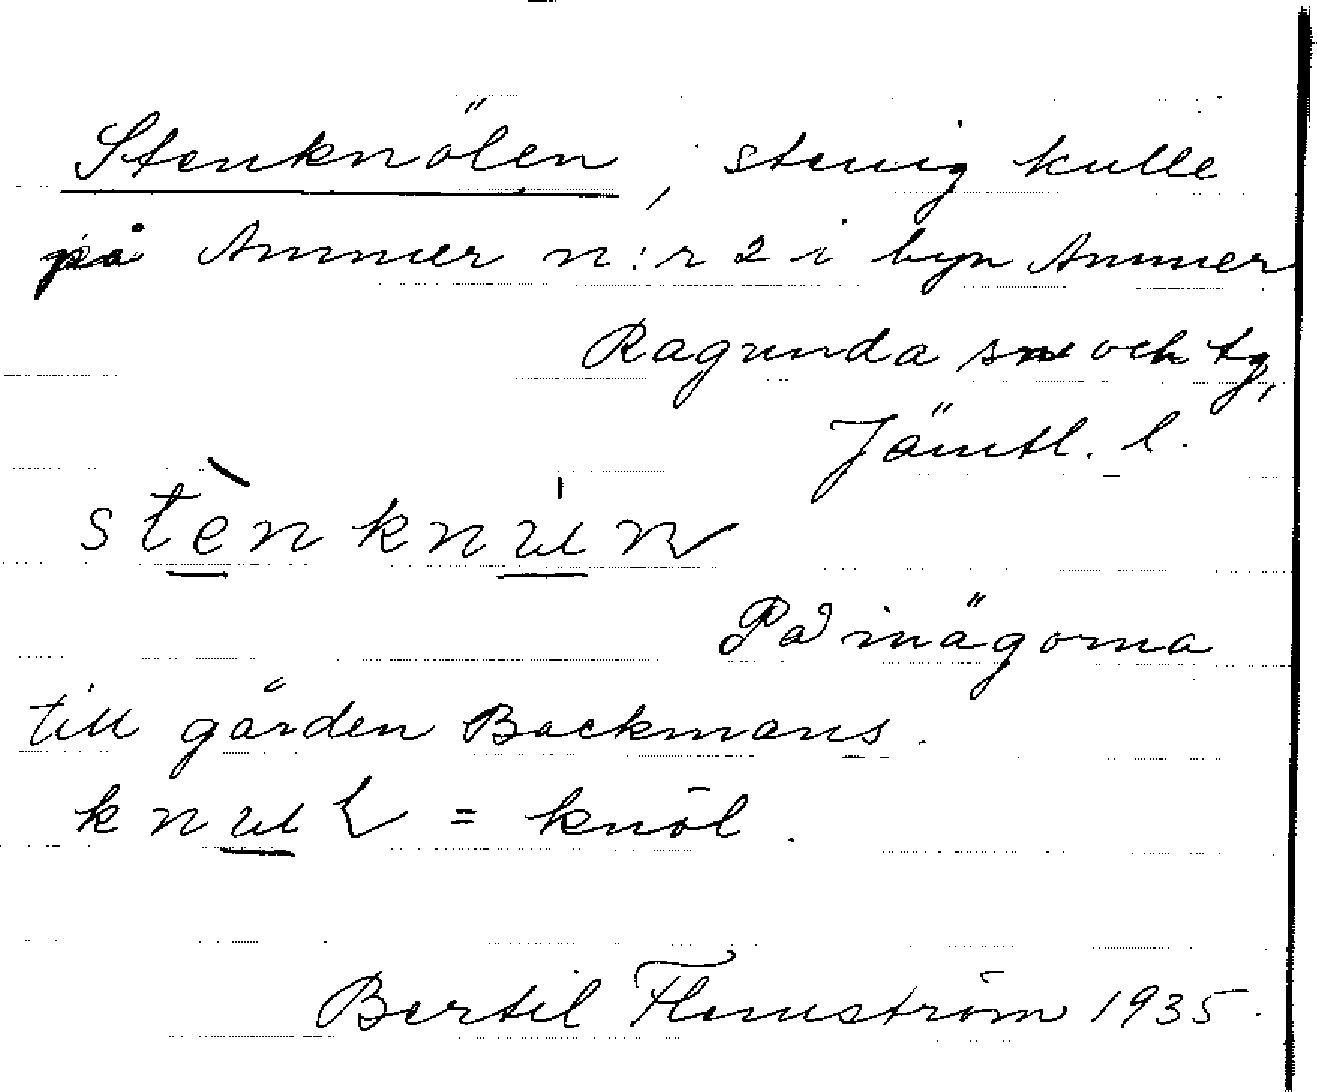 Stenknölen, stenig kulle
på Ammer n:r 2 i byn Ammer
Ragunda sn och tg,
Jämtl. l.
På inägorna
till gården Backmans.
= knöl.
Bertil Flemström 1935.